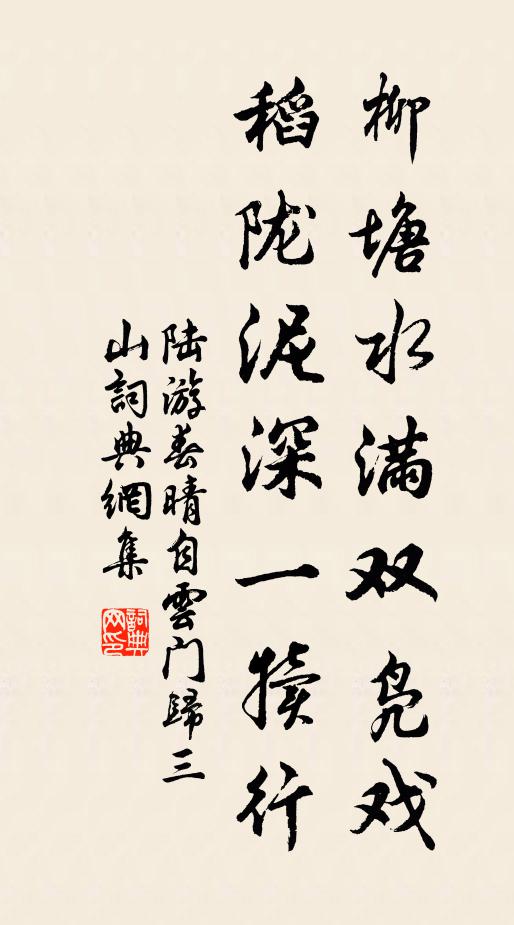 柳塘水满双凫戏
稻陇泥深一犊行
陆游春晴自雲门歸三
山詞典網集
詞典
网印